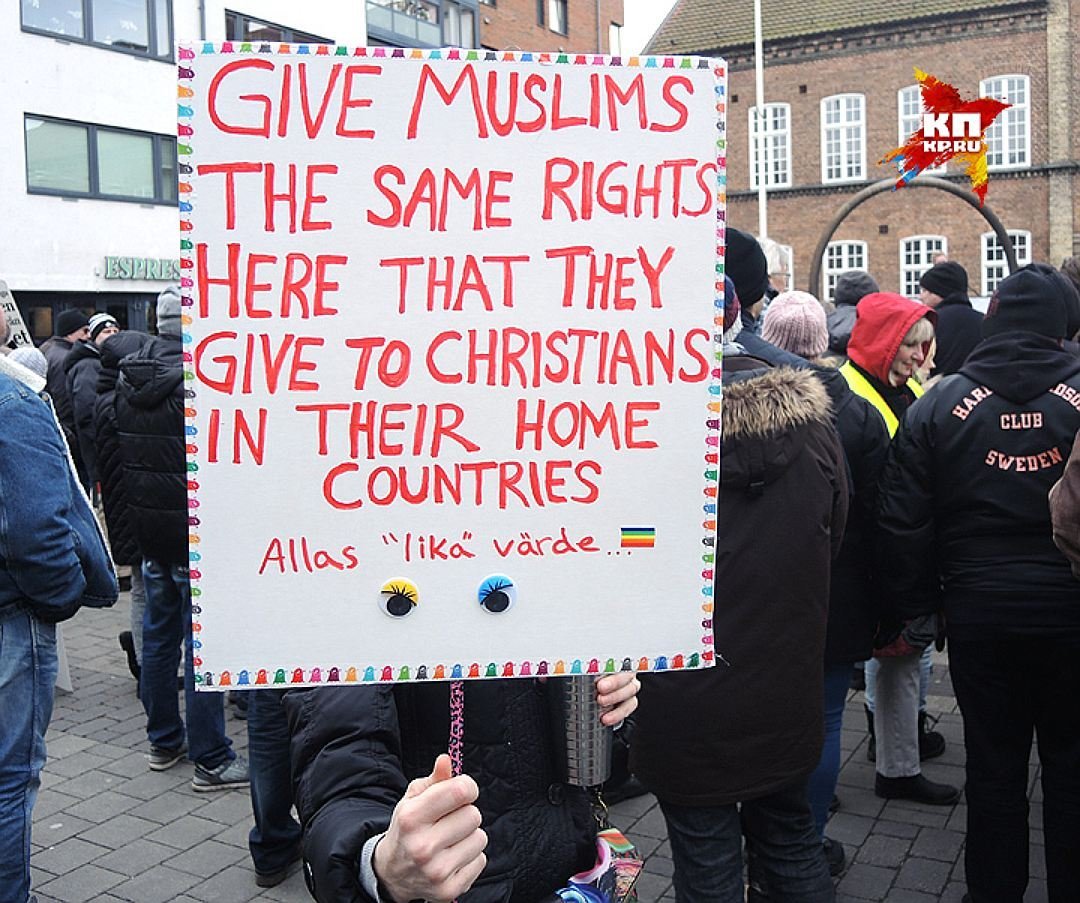 GIVE MUSLIMS
THE SAME RIGHTS
HERE THAT THEY
GIVE TO CHRISTIANS
IN THEIR HOME
COUNTRIES
Allas "lika" värde...
КП
KP.RU
ESPRES
CLUB
SWEDEN